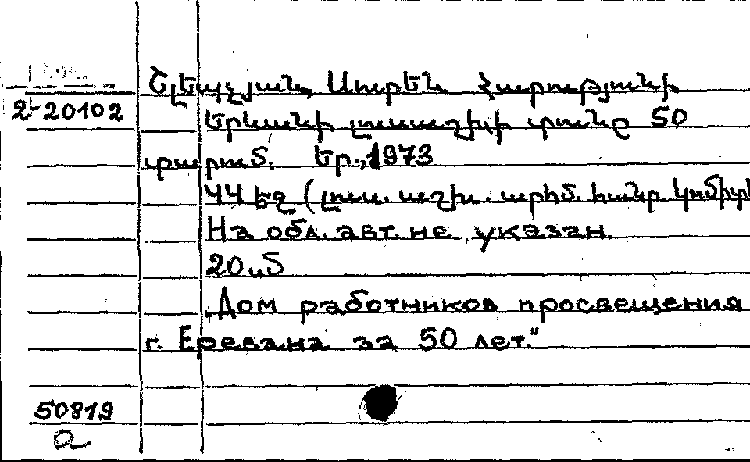 Շլեպչյան, Սուրեն Հարությունի
2-20102
Երևանի լուսաշխի տունը 50
տարում. Եր., 1973
44 եջ (լուս. աշխ. արհմ. հանր. կոմիտե
На обл. авт. не указан.
20սմ
„Дом работников просвещения
г. Еревана за 50 лет."
50819
а